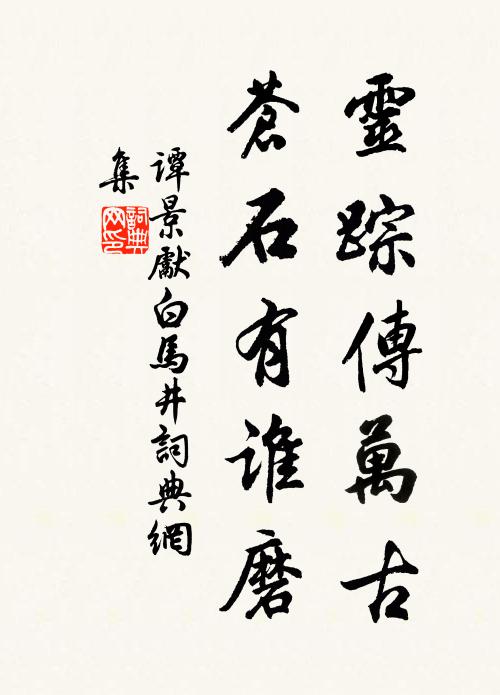 靈踪傳萬古
蒼石有誰磨
譚景獻白馬井詞典網
集
詞典
网印